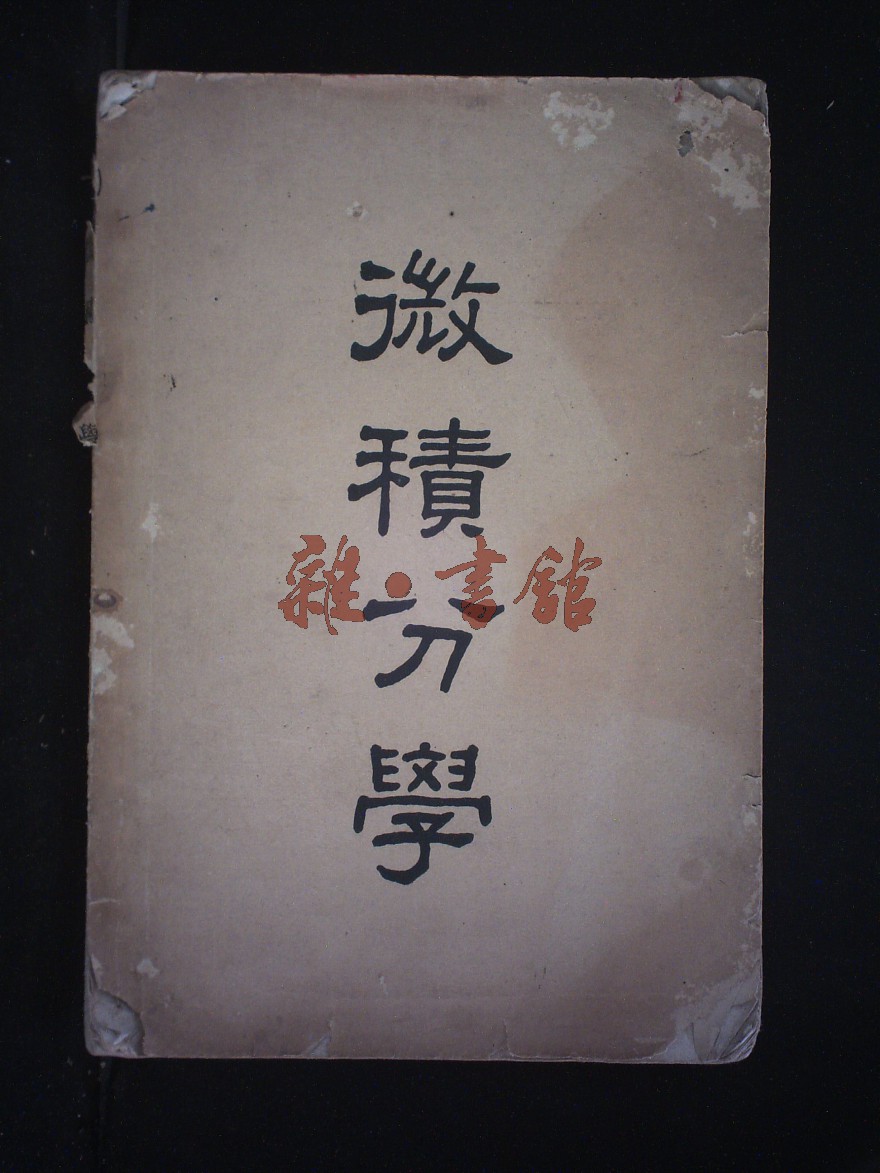 微積分學
雜·書館